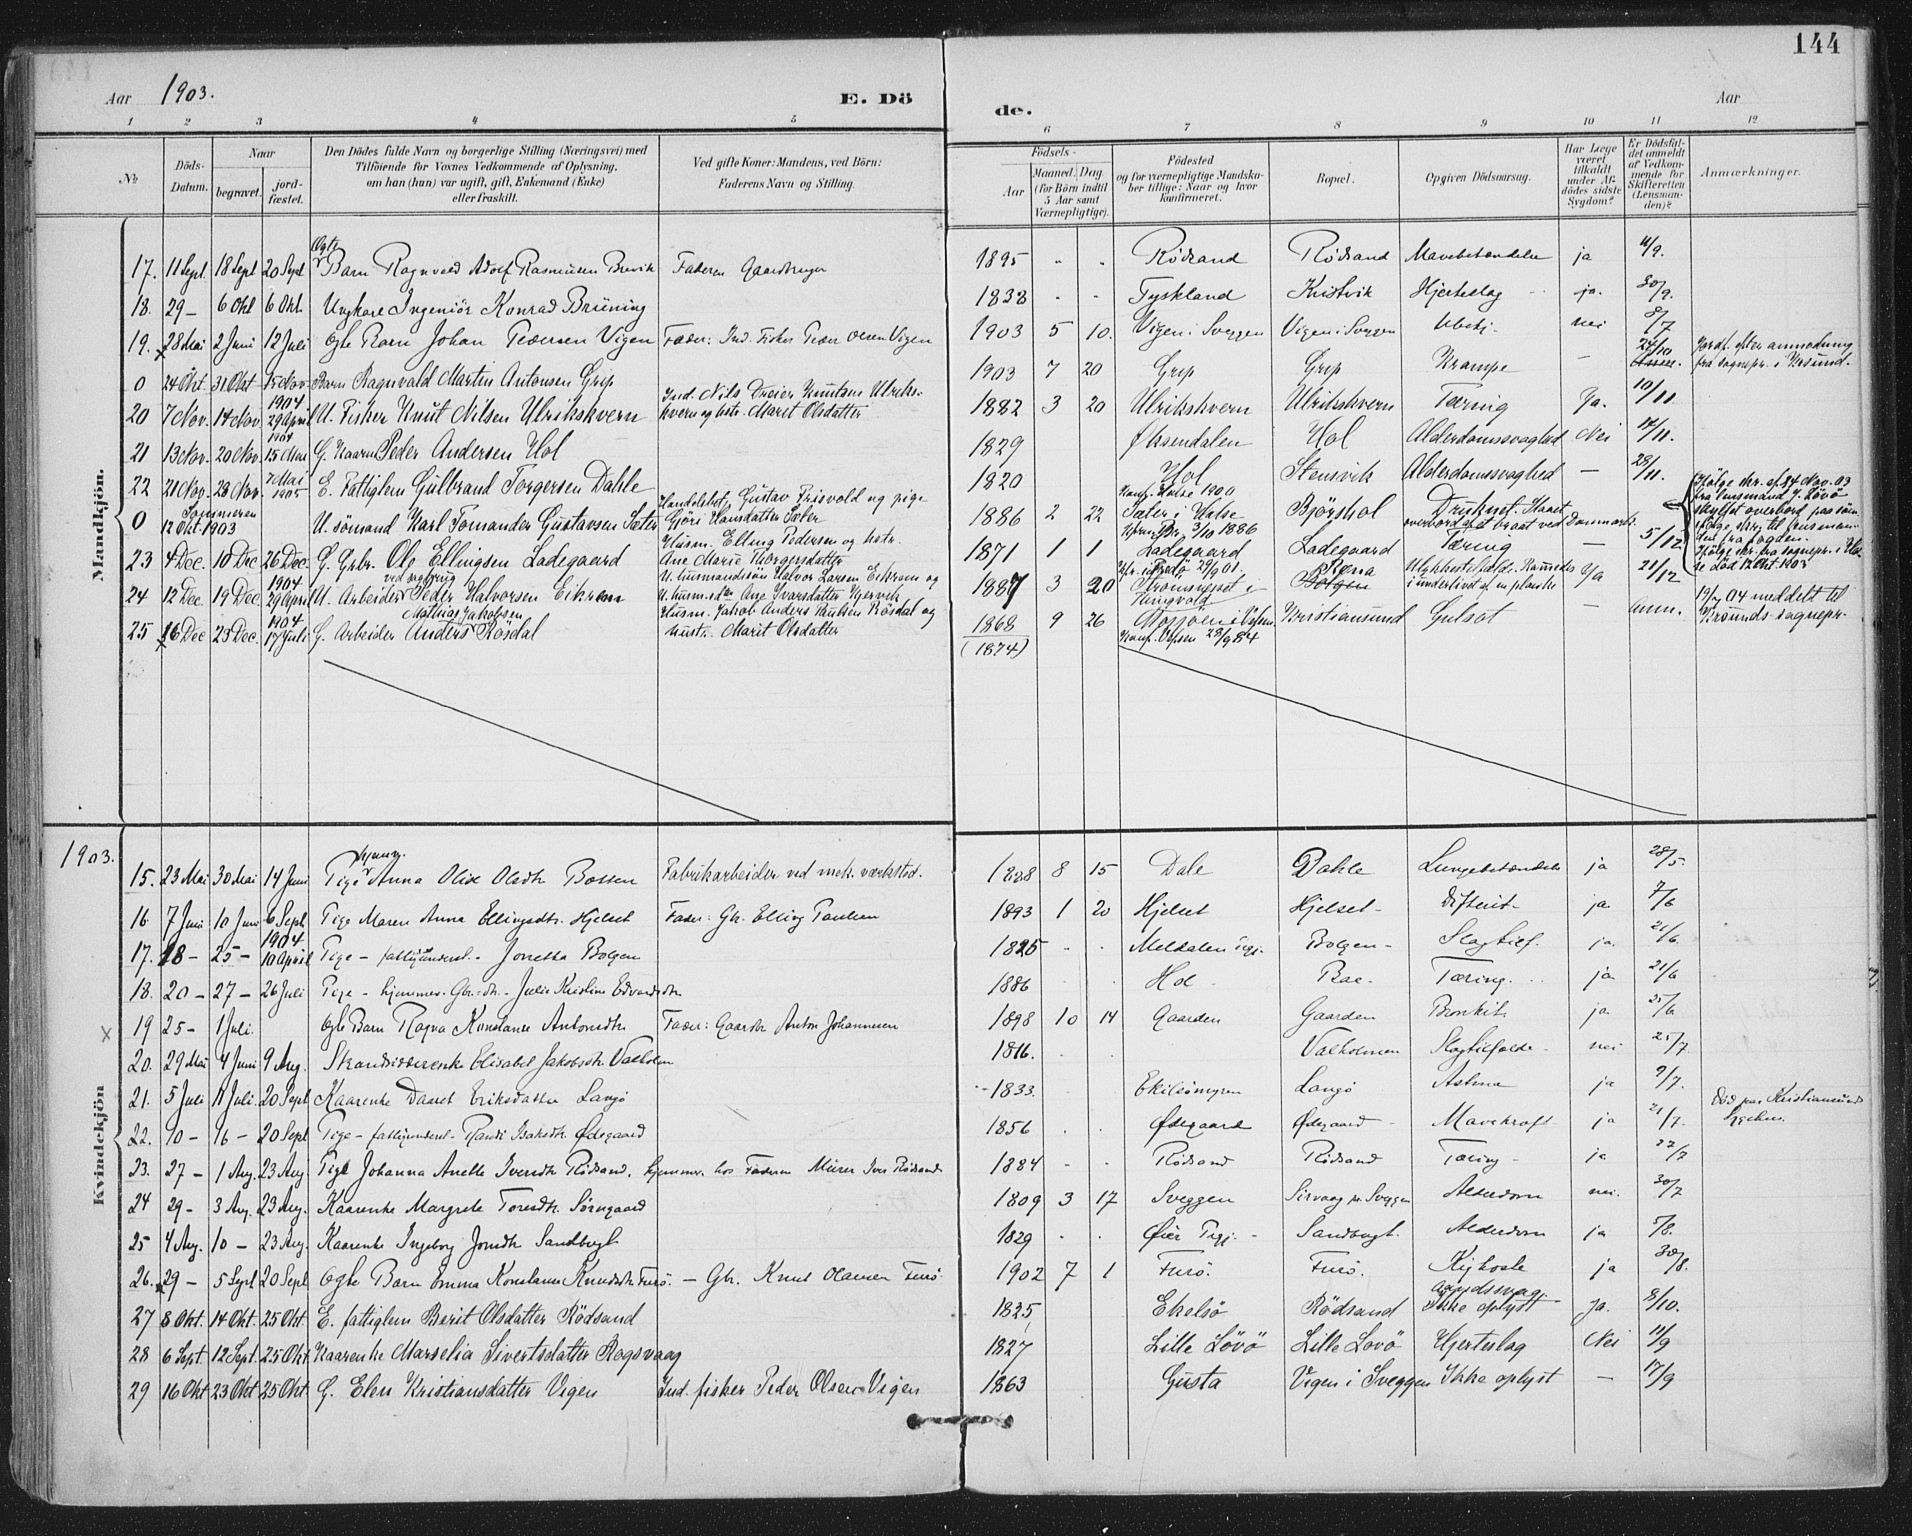 144
Aar 1903.
E. Dö de.
Aar
1 2 3 4 5 6 7 8 9 10 11 12
No.
Döds-Datum.
Naar
begravet.
jord-fæstet.
Den Dödes fulde Navn og borgerlige Stilling (Næringsvei) med
Tilföiende for Voxnes Vedkommende af Oplysning,
om han (hun) var ugift, gift, Enkemand (Enke)
eller fraskilt.
Ved gifte Koner: Mandens, ved Börn:
Faderens Navn og Stilling.
Födsels-
Aar
Maaned. Dag
(for Börn indtil
5 Aar samt
Værnepligtige).
Födested
og for værnepligtige Mandska-
ber tillige: Naar og hvor
konfirmeret.
Bopæl.
Opgiven Dödsaarsag.
Har Læge
været
tilkaldt
under Af-
dödes sidste
Sygdom?
Er Dödsfal-
det anmeldt
af Vedkom-
mende for
Skifteretten
(Lensman-
den)?
Anmærkninger.
Mandkjön.
17. 11 Sept. 18 Sept 20 Sept Ogte Barn Ragnvald Adolf Rasmusen Brevik Faderen Gaardbruger 1895 - - Rödsand Rödsand Mavebetændelse ja 11/9.
18. 29 - 6 Okt 6 Okt. Ungkare Ingeniör Konrad Brüning 1838 - - Tyskland Kristvik Hjerteslag ja. 30/9.
19. 28 Mai 2 Juni 12 Juli Ogte Barn Johan Pedersen Vigen Fader: Ind. Fisker Peder Olsen Vigen 1903 5 10. Vigen i Sveggen Vigen i Sveggen Ubekj. nei 8/7
0 24 Okt. 31 Okt 15 Nov. Barn Ragnvald Martin Antonsen Grip 1903 7 20 Grip Grip Krampe - 24/10 Jordf. efter anmodning fra sognepr. i Krsund.
20 7 Nov. 14 Nov. 1904 29 April U. Fisker Knut Nilsen Ulrikskvern Ind. Nils Dreier Knutsen Ulriks-kvern og hstr. Marit Olsdatter 1882 3 20 Ulrikskvern Ulrikskvern Tæring Ja. 10/11
21 13 Nov. 20 Nov. 1904 15 Mai G. Kaarm. Peder Andersen Hol 1829 Øksendalen Hol Alderdomssvaghed Nei 14/11.
22 21 Nov. 28 Nov. 7 Mai 1905 E. Fattiglem Gulbrand Torgersen Dahle 1820 Hol Stensvik Alderdomssvaghed - 28/11.
0 12 Okt. 1903 U. sömand Karl Tomander Gustavsen Sæter Handelsbet. Gustav Frisvold og pige Gjöri Hansdatter Sæter 1886 2 22 Konf. Halse 1900 Sæter i Halse Bjørshol Druknet. Slaaet overbord af et braat ved Danmark. Ifölge skr. af 24 Nov. 03 fra lensmand J. Lövö skyllet overbord paa söen.
23 4 Dec. 10 Dec 26 Dec. G. Grbr. Ole Ellingsen Ladegaard Husm. Elling Pedersen og hstr. Ane Marie Thorgersdatter 1871 1 1 Ladegaard Ladegaard Tæring - 5/12
24 12 Dec. 19 Dec. 1904 29 April U. Arbeider Peder Halvorsen Eikrem U. husmandssön Halvor Larsen Eikrem og U. husm.dtr. Ane Ivarsdatter Hjervik 1887 3 20 Strömsnæset i Tingvold Ja 21/12
25 16 Dec 23 Dec. 1904 17 Juli G. Arbeider Mathias Jakobsen Anders Rösdal Husm. Jakob Anders Knutsen Rösdal og hustr. Marit Olsdatter 1868 (1874) 9 26 Konf. Vefsen 28/9 84 Kristiansund Gulsot - Anm. 19/4 04 meddelt til Krsunds sognepr.
1903.
Kvindekjön
15. 23 Mai 30 Mai 14 Juni Pige hjemv. Anna Olise Olsdtr Bossen Fabrikarbeider ved mek. værksted. 1888 8 15 Dale Dahle Lungebetændelse ja 28/5.
16 7 Juni 10 Juni 6 Sept Pige Maren Anna Ellingsdtr. Hjelset Fader: Gb. Elling Paulsen 1893 1 20 Hjelset Hjelset - Difterit - ja 7/6
17. 18 - 25 - 1904 10 April Pige - fattigunderst. - Jonetta Bolgen 1825 - - Meldalen Tgj. Bolgen - Slagtilf. ja. 21/6.
18. 20 - 27 - 26 Juli Pige - hjemmev. Gb. dtr. - Julie Kristine Edvardsdtr 1886 Hol - Rae - Tæring. ja 21/6
19 25 - 1 Juli. Ogte Barn Ragna Konstanse Antonsdtr Fader: Gaardbr Anton Johannesen 1898 10 14 Gaarden Gaarden Bronkit ja. 25/6
20. 29 Mai 4 Juni 9 Aug. Strandsidderenke Elisabet Jakobsdtr Valholm 1816. Valholmen Slagtilfælde - nei 25/7
21. 5 Juli 11 Juli. 20 Sept Kaarenke Daaret Eriksdatter Langö 1833. Ekilsömyren Langö Astma ja 9/7.
22. 10 - 16 - 20 Sept Pige - fattigunderst - Randi Isaksdtr Ødegaard 1856 Ødegaard Ødegaard - Mavekræft - ja 21/7. Död paa Kristiansund Sygehus.
23. 27 - 1 Aug. 23 Aug Pige Johanna Anette Iversdtr Rödsand. hjemmev. hos Faderen Murer Iver Rödsand 1884 - - Rödsand Rödsand Tæring - ja 27/7
24 29 - 3 Aug. 23 Aug. Kaarenke Margrete Toresdtr. Sörngaard 1809 3 17 Sveggen Sirvaag pr. Sveggen Alderdom nei. 30/7
25 4 Aug. 10 - 23 Aug. Kaarenke Ingeborg Jonsdtr Sandbugt 1829 - - Øier Tgj. - Sandbugt. Alderdom ja 5/8.
26. 29 - 5 Sept 20 Sept Ogte Barn Emma Konstanse Knudsdtr Furö. - Gbr. Knut Olausen Furö. 1902 7 1 Furö. Furö. Kighoste ja 30/8.
27 8 Okt. 14 Okt. 25 Okt. E. fattiglem Berit Olsdatter Rödsand 1825 Ekelsö Rödsand Ikke oplyst Ja. 8/10.
28 6 Sept. 12 Sept. 25 Okt. Kaarenke Marselia Sivertsdatter Rogsvaag 1827 Lille Lövö Lille Lövö Hjerteslag Nei 11/9
29 16 Okt 23 Okt 25 Okt. G. Elen Kristiansdatter Vigen Ind. fisker Peder Olsen Vigen 1863 Gusta Vigen i Sveggen Ikke oplyst - 17/9